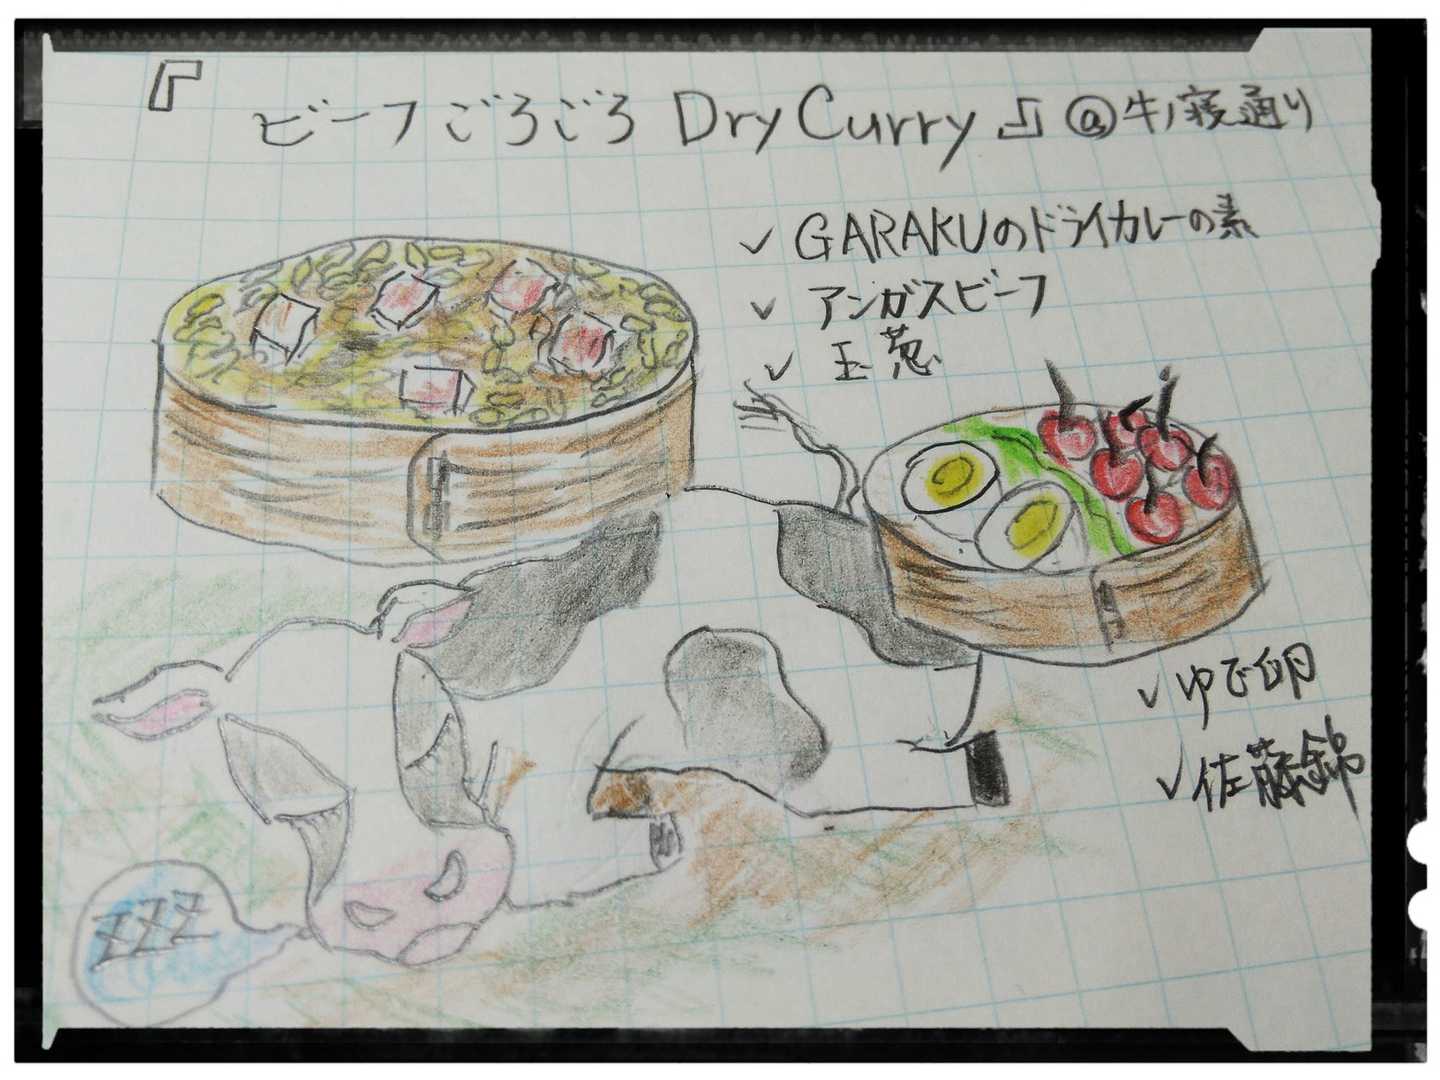 『ビーフごろごろ Dry Curry』@牛ノ寝通り
✓ GARAKUのドライカレーの素
✓ アンガスビーフ
✓ 玉葱
✓ ゆで卵
✓ 佐藤錦
ZZZ